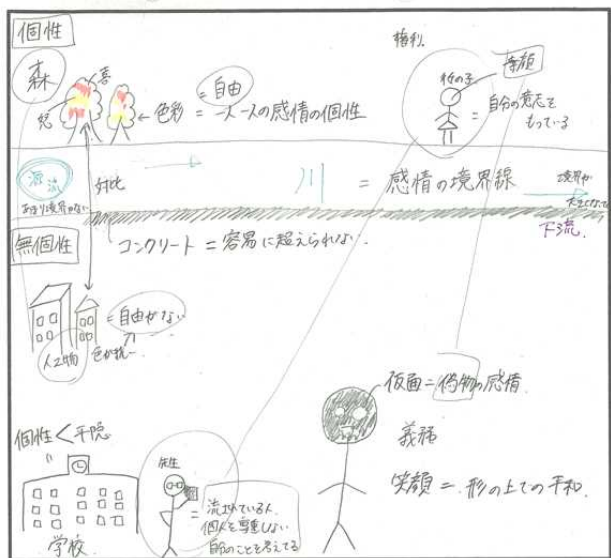 個性
森
喜
怒
= 自由
← 色彩 = 一人一人の感情の個性
権利
素顔
桜の子
= 自分の意志を
もっている
源流
あまり境界のない
対比
川 = 感情の境界線
境界が
大きくなってる
下流
無個性
コンクリート = 容易に超えられない
= 自由がない
人工物
色が統一
個性 < 平穏
学校
先生
= 流されている人
個人を尊重しない
自分のことを考えてる
仮面 = 偽物の感情
義務
笑顔 = 形の上での平和